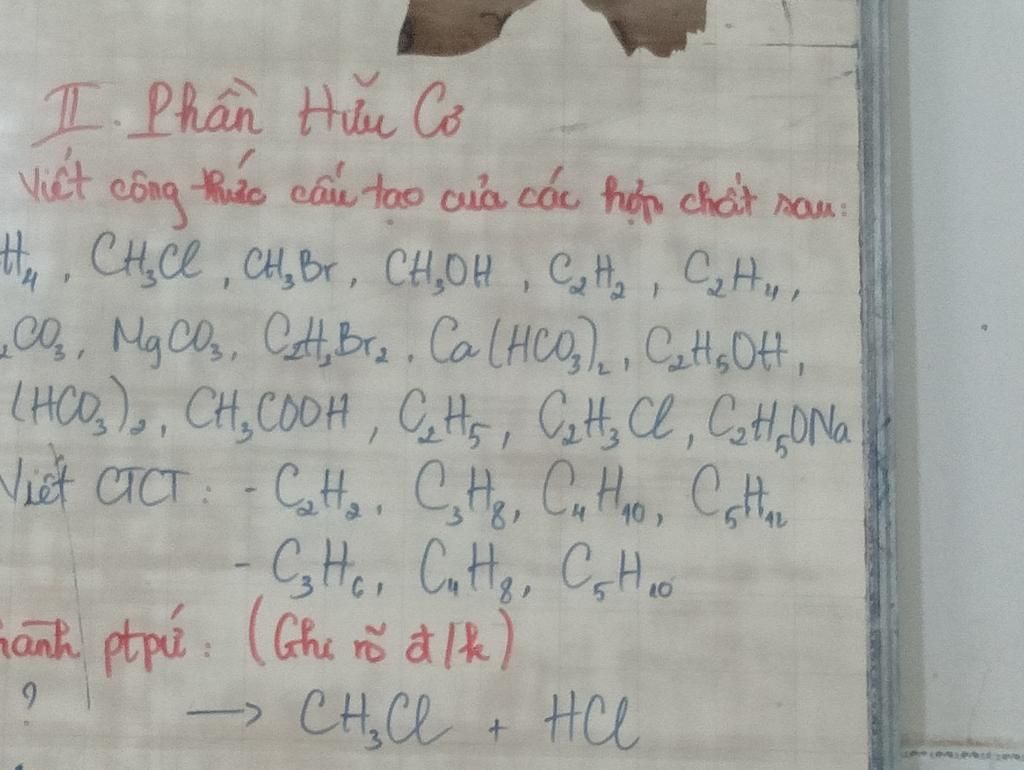 II. Phần Hữu Cơ
Viết công thức cấu tạo của các hợp chất sau:
H₄, CH₃Cl, CH₃Br, CH₃OH, C₂H₂, C₂H₄,
₂CO₃, MgCO₃, C₂H₃Br₂, Ca(HCO₃)₂, C₂H₅OH,
(HCO₃)₂, CH₃COOH, C₂H₅, C₂H₃Cl, C₂H₅ONa
Viết CTCT: - C₂H₂, C₃H₈, C₄H₁₀, C₅H₁₂
- C₃H₆, C₄H₈, C₅H₁₀
hành ptpứ: (Ghi rõ đ/k)
? → CH₃Cl + HCl